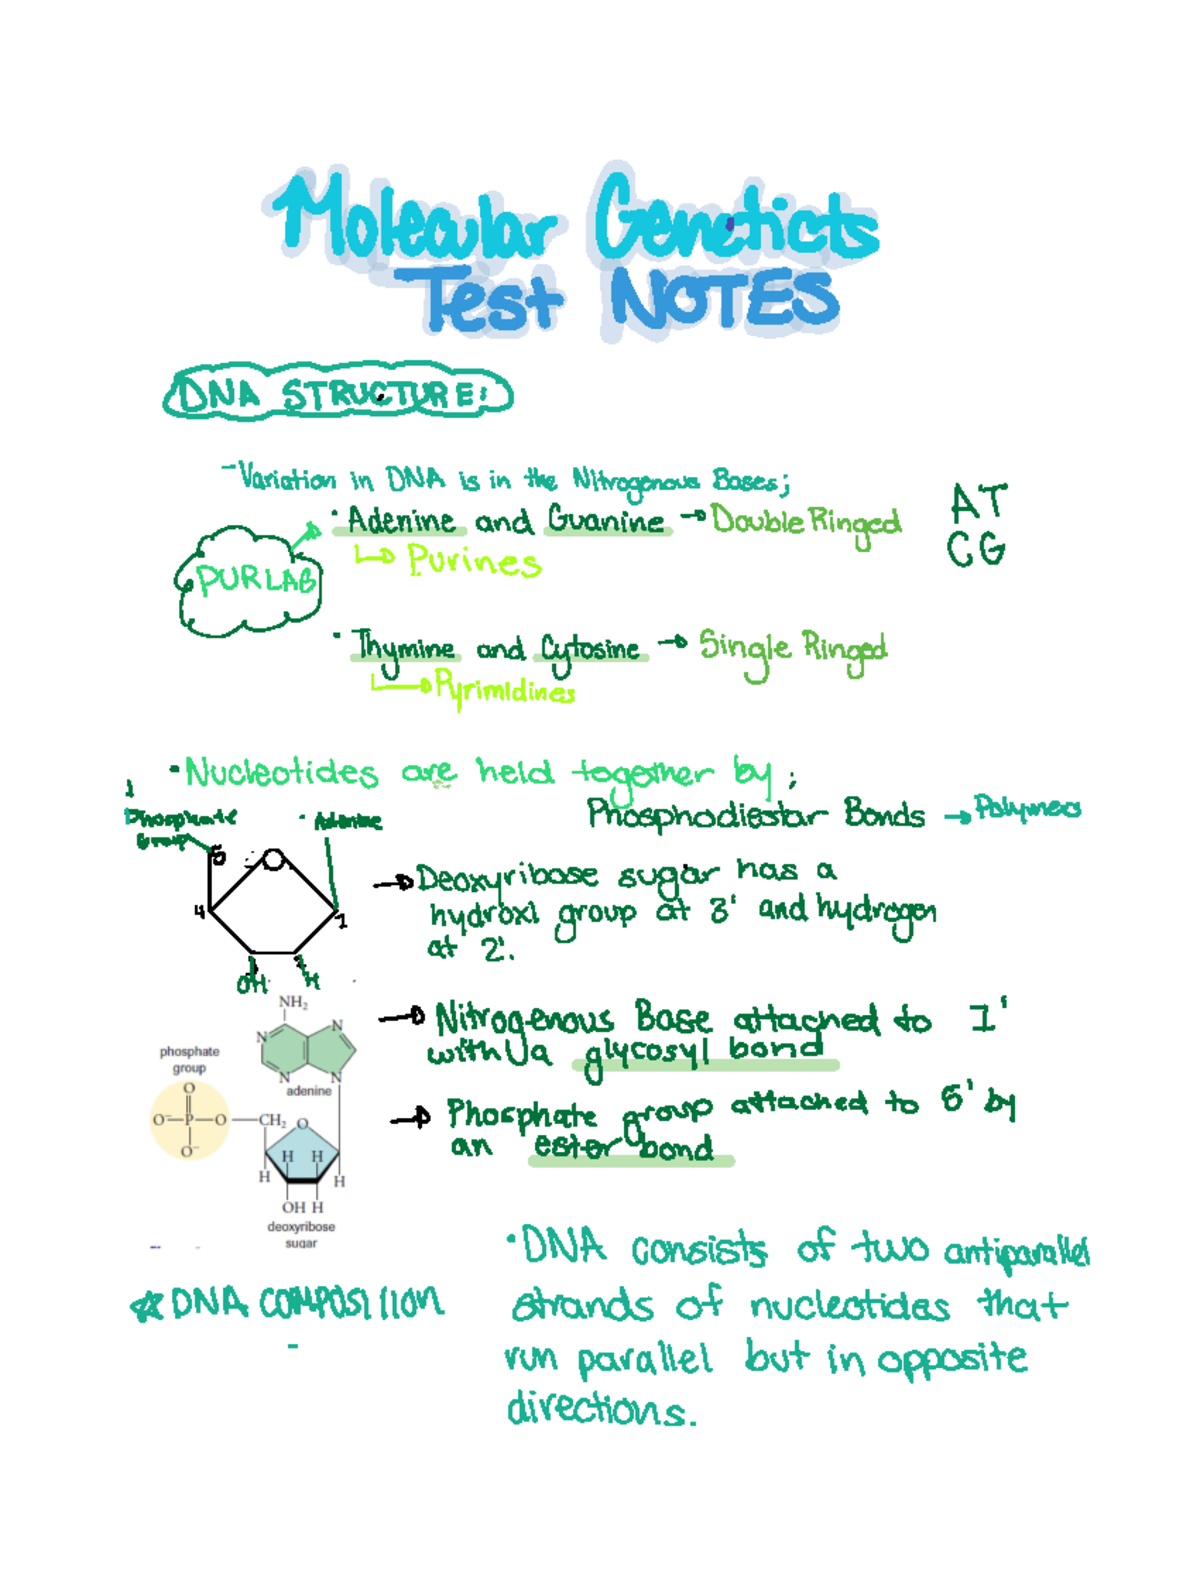 Molecular Geneticts
Test NOTES
DNA STRUCTURE:
-Variation in DNA is in the Nitrogenous Bases;
• Adenine and Guanine → Double Ringed
AT
CG
↳ Purines
PURLAG
• Thymine and Cytosine → Single Ringed
↳ Pyrimidines
• Nucleotides are held together by;
Phosphodiestar Bonds →
Phosphate
Group
• Adenine
5
O
4
1
OH
H
→ Deoxyribose sugar has a
hydroxl group at 3' and hydrogen
at 2'.
→ Nitrogenous Base attached to 1'
with a glycosyl bond
→ Phosphate group attached to 5' by
an ester bond
NH₂
N
N
N
N
adenine
phosphate
group
O
O⁻—P—O—CH₂
O⁻
O
H H
H
H
OH H
deoxyribose
sugar
☆ DNA COMPOSITION
-
• DNA consists of two antiparallel
strands of nucleotides that
run parallel but in opposite
directions.